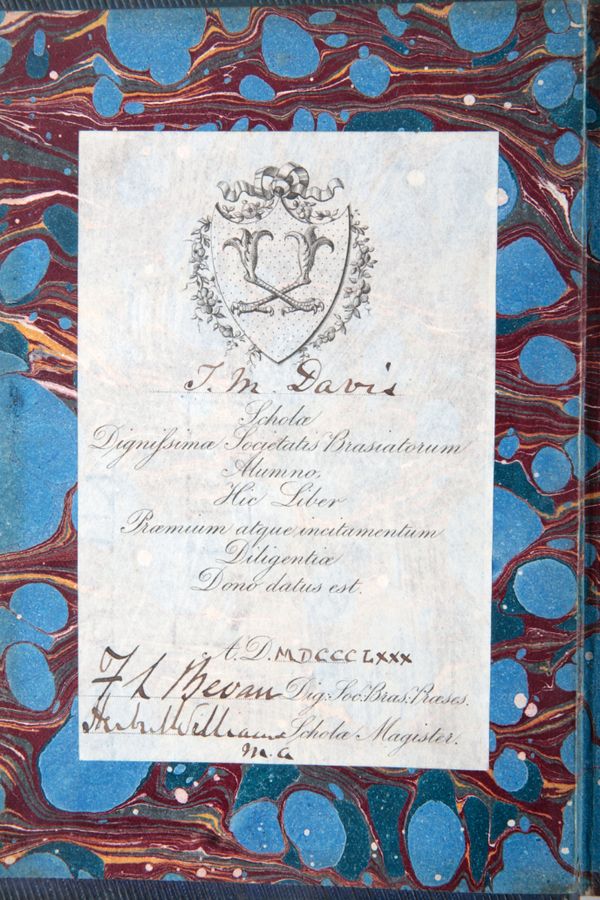 T. M. Davis
Scholæ
Dignissimæ Societatis Brasiatorum
Alumno,
Hic Liber
Præmium atque incitamentum
Diligentiæ
Dono datus est.
A.D. MDCCCLXXX
F L Bevan Dig: Soc: Bras: Præses.
Williams Scholæ Magister.
M.A